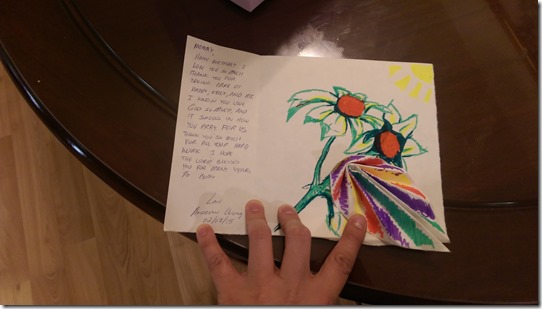 MOMMY,
HAPPY BIRTHDAY! I
LOVE YOU SO MUCH
THANK YOU FOR
TAKING CARE OF
DADDY, KELLY, AND ME
I KNOW YOU LOVE
GOD SO MUCH, AND
IT SHOWS IN HOW
YOU PRAY FOR US.
THANK YOU SO MUCH
FOR ALL YOUR HARD
WORK. I HOPE
THE LORD BLESSES
YOU FOR MANY YEARS
TO
Love
Andrew